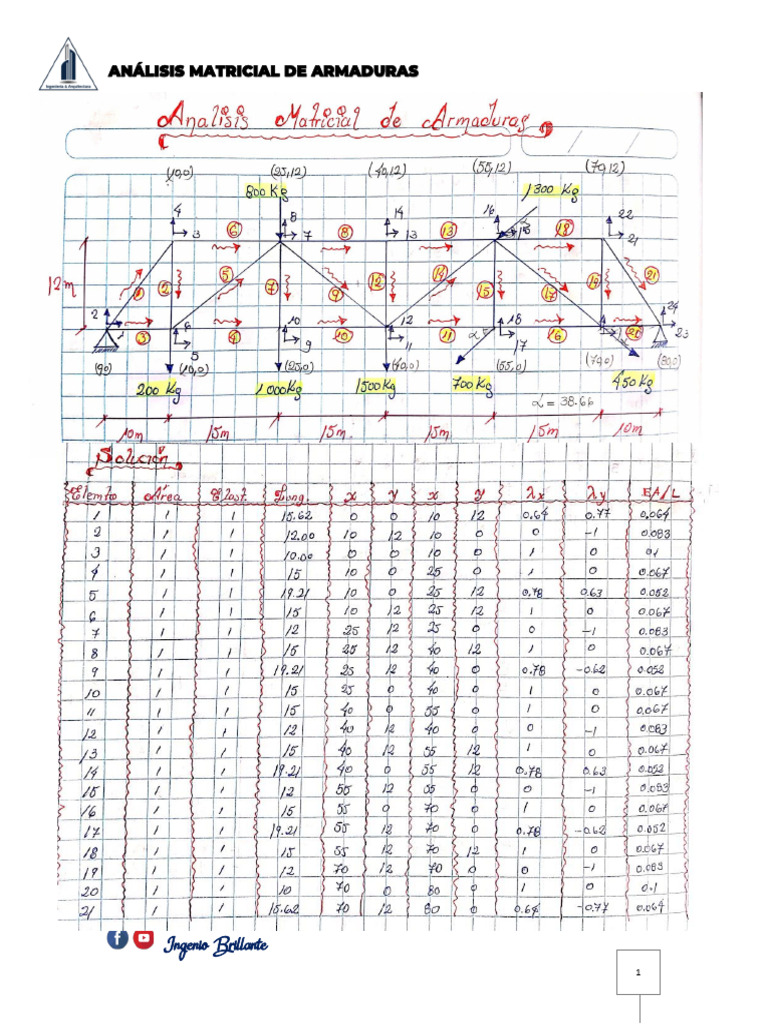 ANÁLISIS MATRICIAL DE ARMADURAS
Ingenieria & Arquitectura
Analisis Matricial de Armaduras
(10,0) (25,12) (40,12) (55,12) (70,12)
800 Kg 1300 Kg
4 8 14 16 22
3 6 7 8 13 13 15 18 21
12m
1 2 5 7 9 12 14 15 17 19 21
2 6 10 12 18 24
1 3 4 9 10 11 11 α 17 16 20 23
5
(0,0) (10,0) (25,0) (40,0) (55,0) (70,0) (80,0)
200 Kg 1000Kg 1500Kg 700Kg 450Kg
α = 38.66
10m 15m 15m 15m 15m 10m
Solución
Elemto Área Elast. Long. x y x y λx λy EA/L
1 1 1 15.62 0 0 10 12 0.64 0.77 0.064
2 1 1 12.00 10 12 10 0 0 -1 0.083
3 1 1 10.00 0 0 10 0 1 0 0.1
4 1 1 15 10 0 25 0 1 0 0.067
5 1 1 19.21 10 0 25 12 0.78 0.63 0.052
6 1 1 15 10 12 25 12 1 0 0.067
7 1 1 12 25 12 25 0 0 -1 0.083
8 1 1 15 25 12 40 12 1 0 0.067
9 1 1 19.21 25 12 40 0 0.78 -0.62 0.052
10 1 1 15 25 0 40 0 1 0 0.067
11 1 1 15 40 0 55 0 1 0 0.067
12 1 1 12 40 12 40 0 0 -1 0.083
13 1 1 15 40 12 55 12 1 0 0.067
14 1 1 19.21 40 0 55 12 0.78 0.63 0.052
15 1 1 12 55 12 55 0 0 -1 0.083
16 1 1 15 55 0 70 0 1 0 0.067
17 1 1 19.21 55 12 70 0 0.78 -0.62 0.052
18 1 1 15 55 12 70 12 1 0 0.067
19 1 1 12 70 12 70 0 0 -1 0.083
20 1 1 10 70 0 80 0 1 0 0.1
21 1 1 15.62 70 12 80 0 0.64 -0.77 0.064
Ingenio Brillante
1